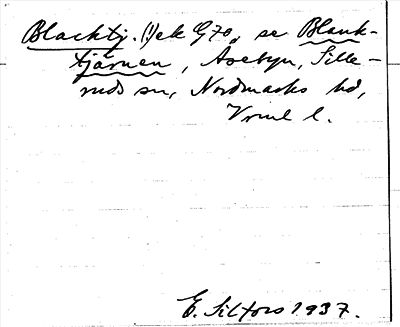 Blacktj. (!) ek G 70, se Blank-
tjärnen, Asebyn, Sille-
ruds sn, Nordmarks hd,
Vrml l.
E. Silfors 1937.